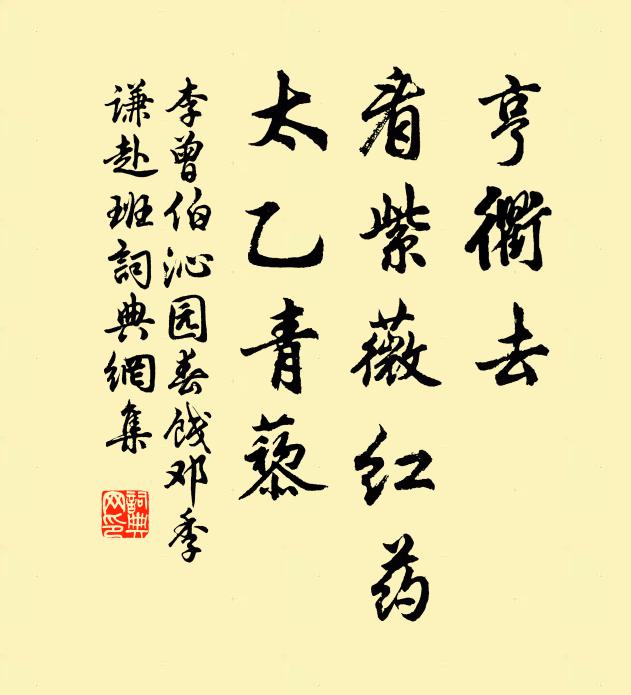 亨衢去
看紫薇红药
太乙青藜
李曾伯沁园春饯邓季
谦赴班詞典網集
詞典网印